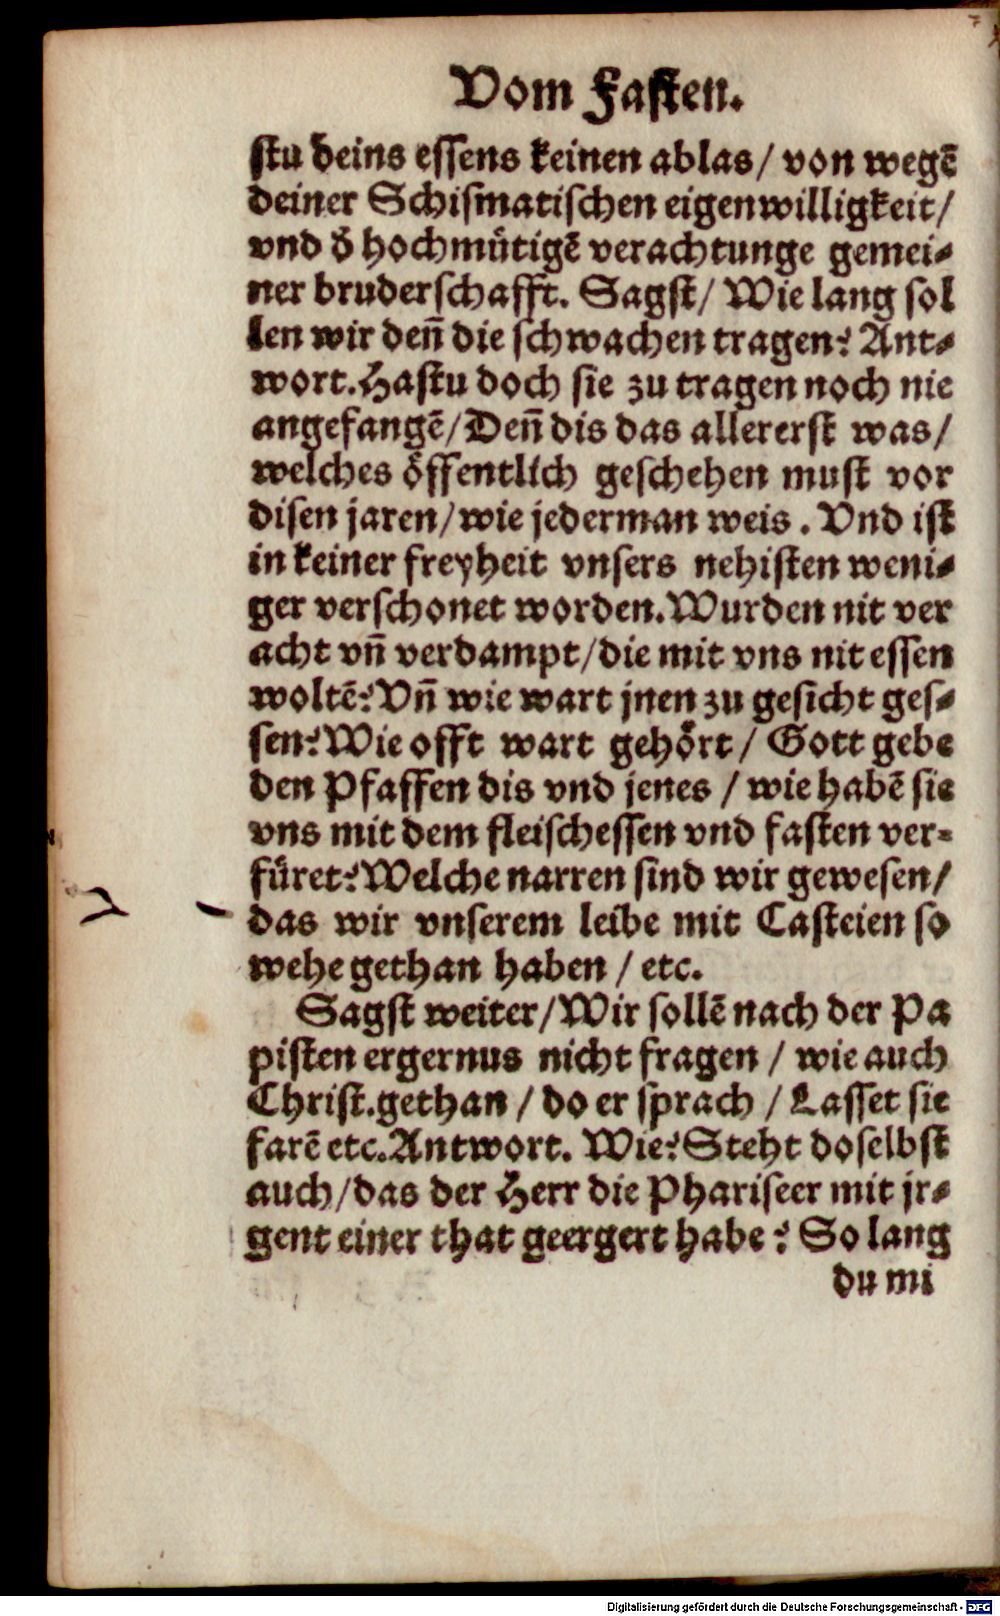 Vom Fasten.
stu deins essens keinen ablas/ von wegē
deiner Schismatischen eigenwilligkeit/
vnd d̓ hochmütigē verachtunge gemei-
ner bruderschafft. Sagst/ Wie lang sol
len wir deñ die schwachen tragen? Ant-
wort. Hastu doch sie zu tragen noch nie
angefangē/ Deñ dis das allererst was/
welches öffentlich geschehen must vor
disen jaren/ wie jederman weis. Vnd ist
in keiner freyheit vnsers nehisten weni-
ger verschonet worden. Wurden nit ver
acht vñ verdampt/ die mit vns nit essen
woltē? Vñ wie wart jnen zu gesicht ges-
sen? Wie offt wart gehört/ Gott gebe
den Pfaffen dis vnd jenes/ wie habē sie
vns mit dem fleischessen vnd fasten ver-
füret? Welche narren sind wir gewesen/
das wir vnserem leibe mit Casteien so
wehe gethan haben/ etc.
Sagst weiter/ Wir sollē nach der Pa
pisten ergernus nicht fragen/ wie auch
Christ. gethan/ do er sprach/ Lasset sie
farē etc. Antwort. Wie? Steht doselbst
auch/ das der Herr die Phariseer mit jr-
gent einer that geergert habe? So lang
du mi
Digitalisierung gefördert durch die Deutsche Forschungsgemeinschaft - DFG